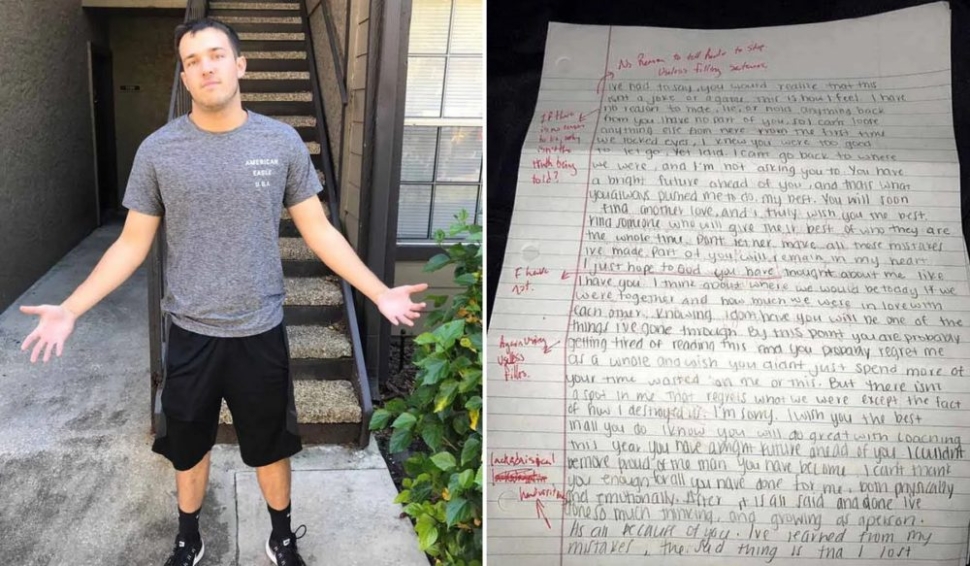 AMERICAN
EAGLE
USA
No Reason to tell Reader to stop
Useless filling sentence
I've had to say, you would realize that this
isnt a joke, or a game this is how I feel. I have
no reason to hide, lie, or hold anything back
from you. I have no part of you, so I cant loose
anything else from here. From the first time
we locked eyes, I knew you were too good
to let go, Yet I did. I cant go back to where
we were, and I'm not asking you to. You have
a bright future ahead of you, and thats what
you always pushed me to do, my best. You will soon
find another love, and I truly wish you the best.
Find someone who will give their best of who they are
the whole time. Dont let her make all those mistakes
I've made. Part of you will remain in my heart
I just hope to God you have thought about me like
I have you. I think about where we would be today if we
were together and how much we were in love with
each other. Knowing I dont have you will be one of the
things I've gone through. By this point you are probably
getting tired of reading this and you probably regret me
as a whole and wish you didnt just spend more of
your time wasted on me or this. But there isnt
a spot in me that regrets what we were except the fact
of how I destroyed it. I'm sorry. I wish you the best
in all you do. I know you will do great with coaching
this year. You have a bright future ahead of you. I couldnt
be more proud of the man you have become. I cant thank
you enough for all you have done for me, both physically
and emotionally. After it is all said and done I've
done so much thinking, and growing as a person.
As all because of you. I've learned from my
mistakes, the sad thing is tha I lost
If there
is no reason
to lie, why
isn't the
truth being
told?
I have
not.
Again using
useless
filler.